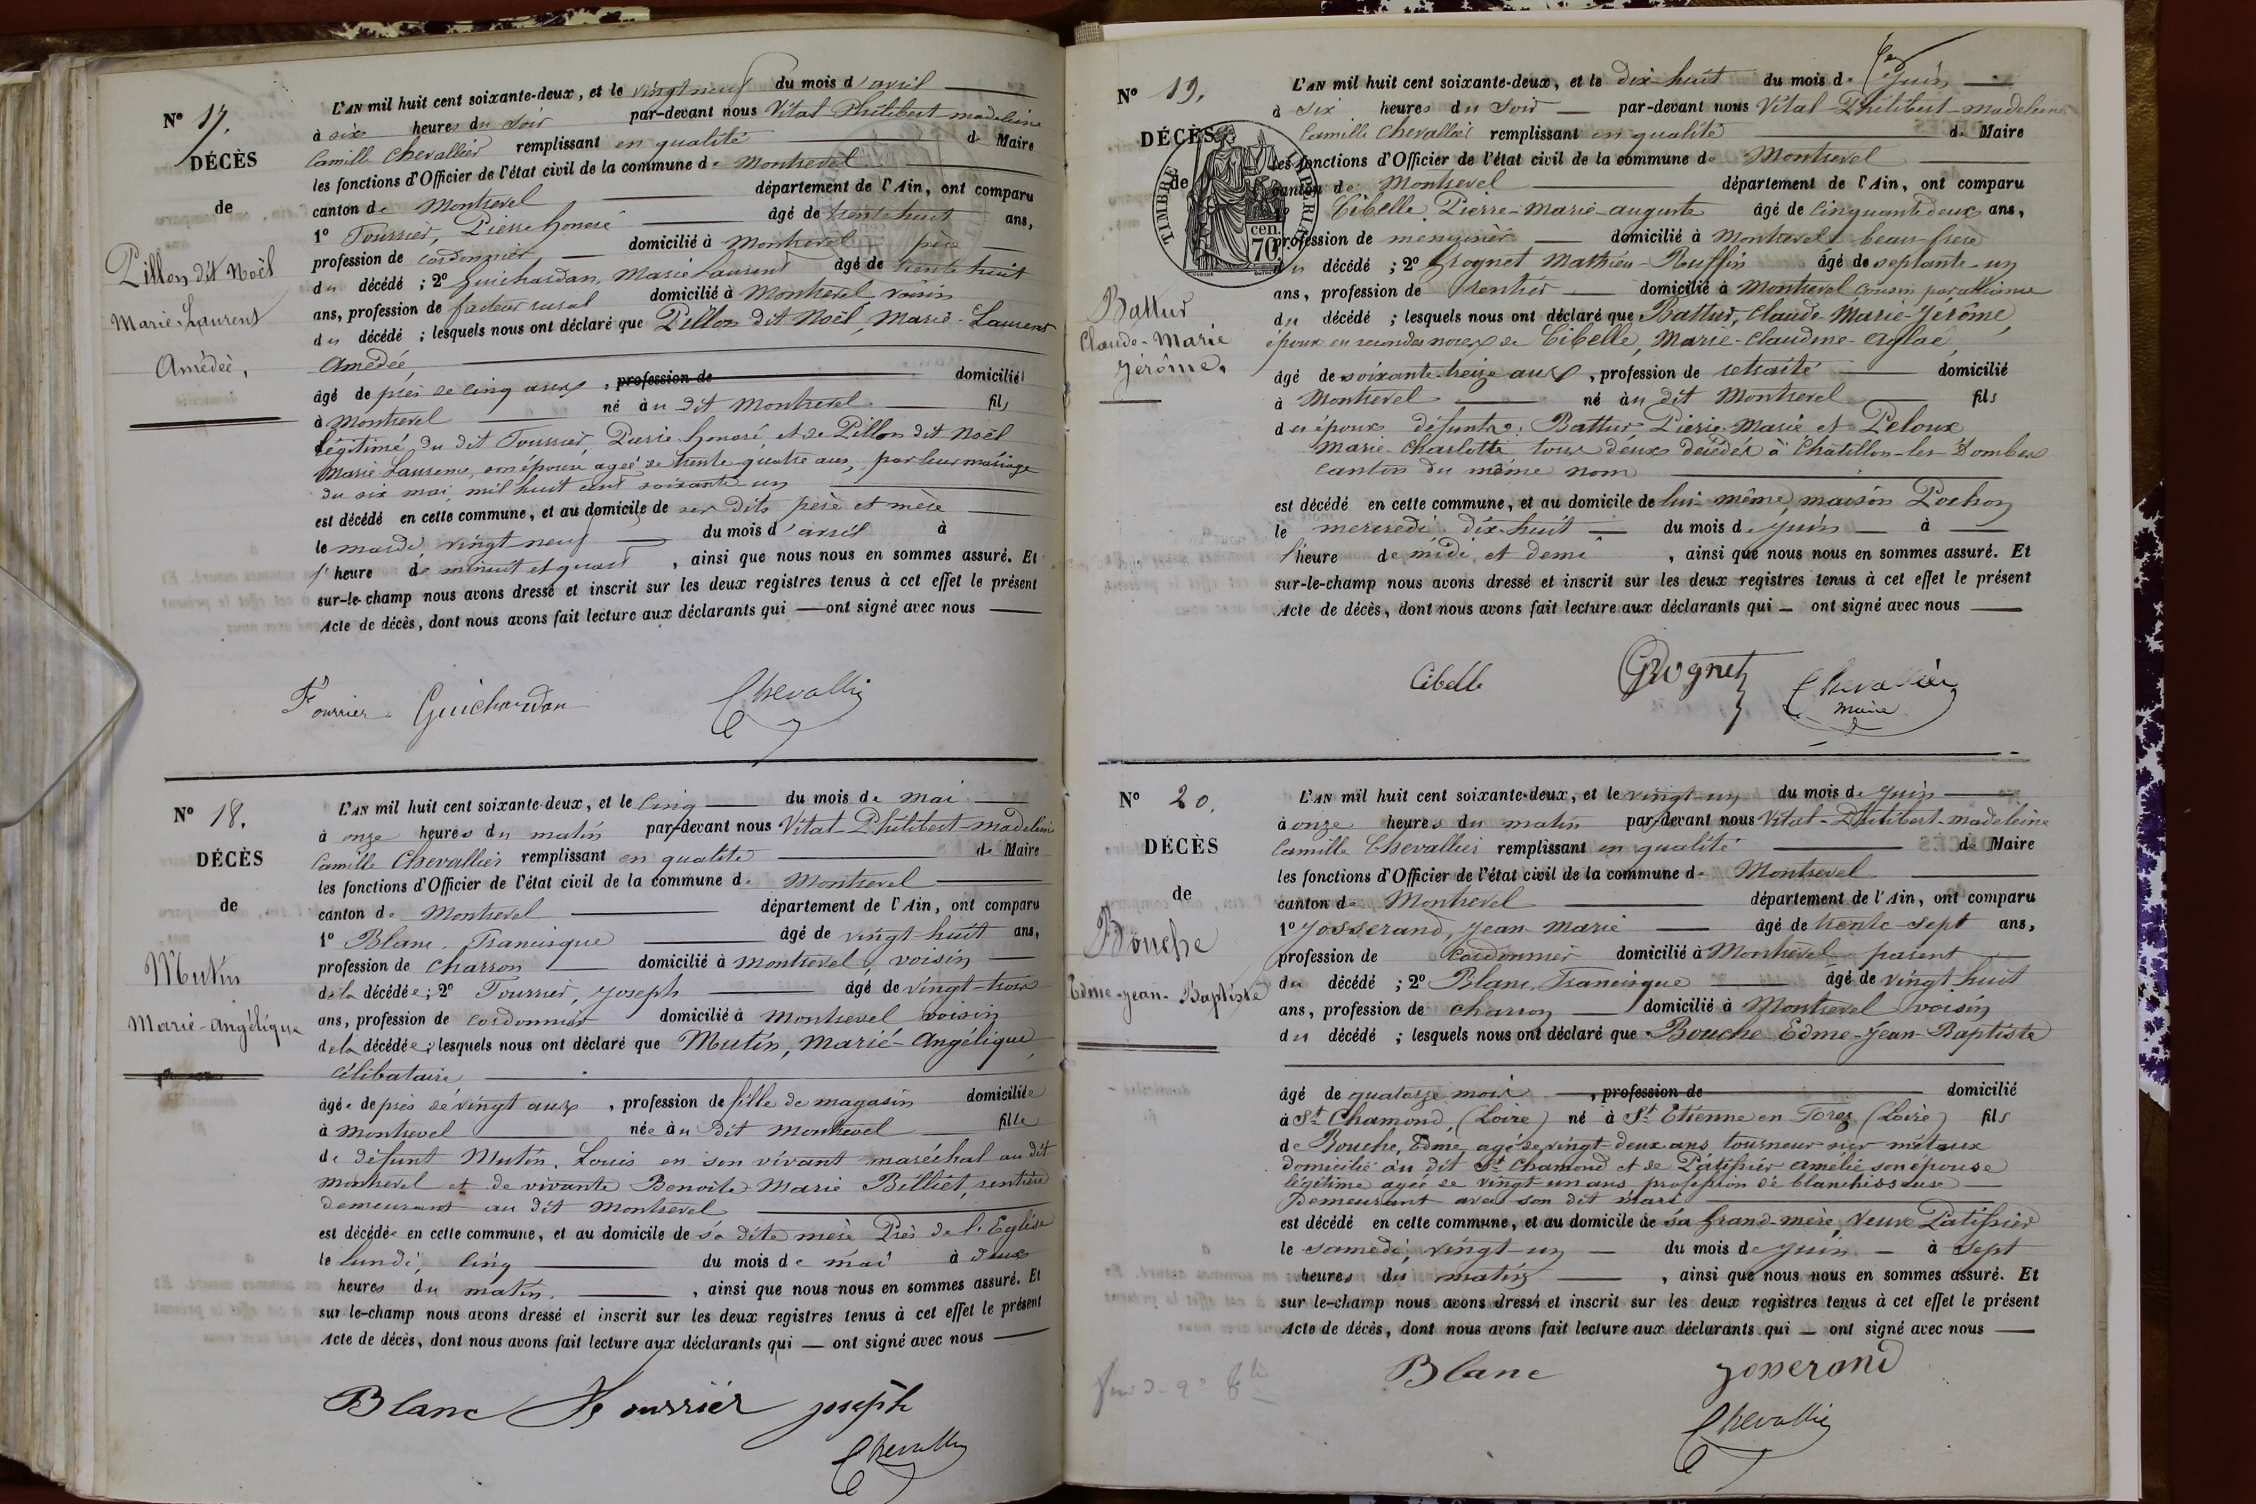 N° 17.
DÉCÈS
de
Pillon dit Noël
Marie-Laurent
Amédée,
L'AN mil huit cent soixante-deux, et le vingt neuf du mois d'avril
à six heures du soir par-devant nous Vital-Philibert-madeleine
Camille Chevallier remplissant en qualité de Maire
les fonctions d'Officier de l'état civil de la commune de Montrevel
canton de Montrevel département de l'Ain, ont comparu
1° Fourrier, Pierre honoré âgé de trente huit ans,
profession de cordonnier domicilié à Montrevel père
du décédé ; 2° Guichardan, Marie Laurent âgé de trente huit
ans, profession de facteur rural domicilié à Montrevel voisin
du décédé ; lesquels nous ont déclaré que Pillon dit Noël, Marie-Laurent
Amédée,
âgé de près de cinq ans, profession de domicilié
à Montrevel né au dit Montrevel fils
légitimé du dit Fourrier, Pierre honoré et de Pillon dit Noël
Marie Laurence, son épouse agée de trente quatre ans, par leur mariage
du six mai mil huit cent soixante un
est décédé en cette commune, et au domicile de ses dits père et mère
le mardi, vingt neuf du mois d'avril à
l'heure de minuit et quart, ainsi que nous nous en sommes assuré. Et
sur-le-champ nous avons dressé et inscrit sur les deux registres tenus à cet effet le présent
Acte de décès, dont nous avons fait lecture aux déclarants qui — ont signé avec nous
Fourrier Guichardan Chevallier
N° 18.
DÉCÈS
de
Mutin
Marie-Angélique
L'AN mil huit cent soixante-deux, et le Cinq du mois de Mai
à onze heures du matin par-devant nous Vital-Philibert-madeleine
Camille Chevallier remplissant en qualité de Maire
les fonctions d'Officier de l'état civil de la commune de Montrevel
canton de Montrevel département de l'Ain, ont comparu
1° Blanc Francisque âgé de vingt-huit ans,
profession de charron domicilié à Montrevel, voisin
de la décédée ; 2° Fourrier, Joseph âgé de vingt-trois
ans, profession de cordonnier domicilié à Montrevel voisin
de la décédée ; lesquels nous ont déclaré que Mutin, Marie-Angélique
célibataire
âgée de près de vingt ans, profession de fille de magasin domiciliée
à Montrevel née au dit Montrevel fille
de défunt Mutin, Louis en son vivant maréchal au dit
Montrevel et de vivante Benoite Marie Billiet, rentière
demeurant au dit Montrevel
est décédée en cette commune, et au domicile de sa dite mère Près de l'Eglise
le lundi, cinq du mois de mai à deux
heures du matin, ainsi que nous nous en sommes assuré. Et
sur le-champ nous avons dressé et inscrit sur les deux registres tenus à cet effet le présent
Acte de décès, dont nous avons fait lecture aux déclarants qui — ont signé avec nous
Blanc Fourrier joseph
Chevallier
N° 19.
DÉCÈS
de
TIMBRE IMPERIAL
70 cen.
Battur
Claude-Marie
Jérôme.
L'AN mil huit cent soixante-deux, et le dix-huit du mois de Juin
à six heures du soir par-devant nous Vital-Philibert-madeleine
Camille Chevallier remplissant en qualité de Maire
les fonctions d'Officier de l'état civil de la commune de Montrevel
canton de Montrevel département de l'Ain, ont comparu
1° Cibelle Pierre-Marie-auguste âgé de cinquante deux ans,
profession de menuisier domicilié à Montrevel beau-frère
du décédé ; 2° Grognet Mathieu-Ruffin âgé de septante-un
ans, profession de rentier domicilié à Montrevel cousin par alliance
du décédé ; lesquels nous ont déclaré que Battur, Claude-Marie-Jérôme,
époux en secondes noces de Cibelle, Marie-Claudine-Aglaé
âgé de soixante-treize ans, profession de retraité domicilié
à Montrevel né au dit Montrevel fils
des époux défunts : Battur Pierre-Marie et Peloux
Marie-Charlotte tous deux décédés à Châtillon-les-Dombes
canton du même nom
est décédé en cette commune, et au domicile de lui-même, maison Pochon
le mercredi dix-huit du mois de Juin à
l'heure de midi et demi, ainsi que nous nous en sommes assuré. Et
sur-le-champ nous avons dressé et inscrit sur les deux registres tenus à cet effet le présent
Acte de décès, dont nous avons fait lecture aux déclarants qui — ont signé avec nous
Cibelle Grognet Chevallier
maire
N° 20.
DÉCÈS
de
Bouche
Edme-Jean-Baptiste
L'AN mil huit cent soixante-deux, et le vingt-un du mois de Juin
à onze heures du matin par-devant nous Vital-Philibert-madeleine
Camille Chevallier remplissant en qualité de Maire
les fonctions d'Officier de l'état civil de la commune de Montrevel
canton de Montrevel département de l'Ain, ont comparu
1° Josserand, Jean Marie âgé de trente-sept ans,
profession de Cordonnier domicilié à Montrevel parent
du décédé ; 2° Blanc, Francisque âgé de vingt huit
ans, profession de charron domicilié à Montrevel voisin
du décédé ; lesquels nous ont déclaré que Bouche Edme-Jean-Baptiste
âgé de quatorze mois, profession de domicilié
à St Chamond, (Loire) né à St Etienne en Forez (Loire) fils
de Bouche, Edme, agé de vingt-deux ans tourneur sur métaux
domicilié au dit St Chamond et de Patissier Amélie son épouse
légitime agée de vingt un ans profession de blanchisseuse
demeurant avec son dit mari
est décédé en cette commune, et au domicile de sa Grand-mère, Veuve Patissier
le samedi, vingt-un du mois de Juin à sept
heures du matin, ainsi que nous nous en sommes assuré. Et
sur le-champ nous avons dressé et inscrit sur les deux registres tenus à cet effet le présent
Acte de décès, dont nous avons fait lecture aux déclarants qui — ont signé avec nous
Blanc Josserand
Chevallier